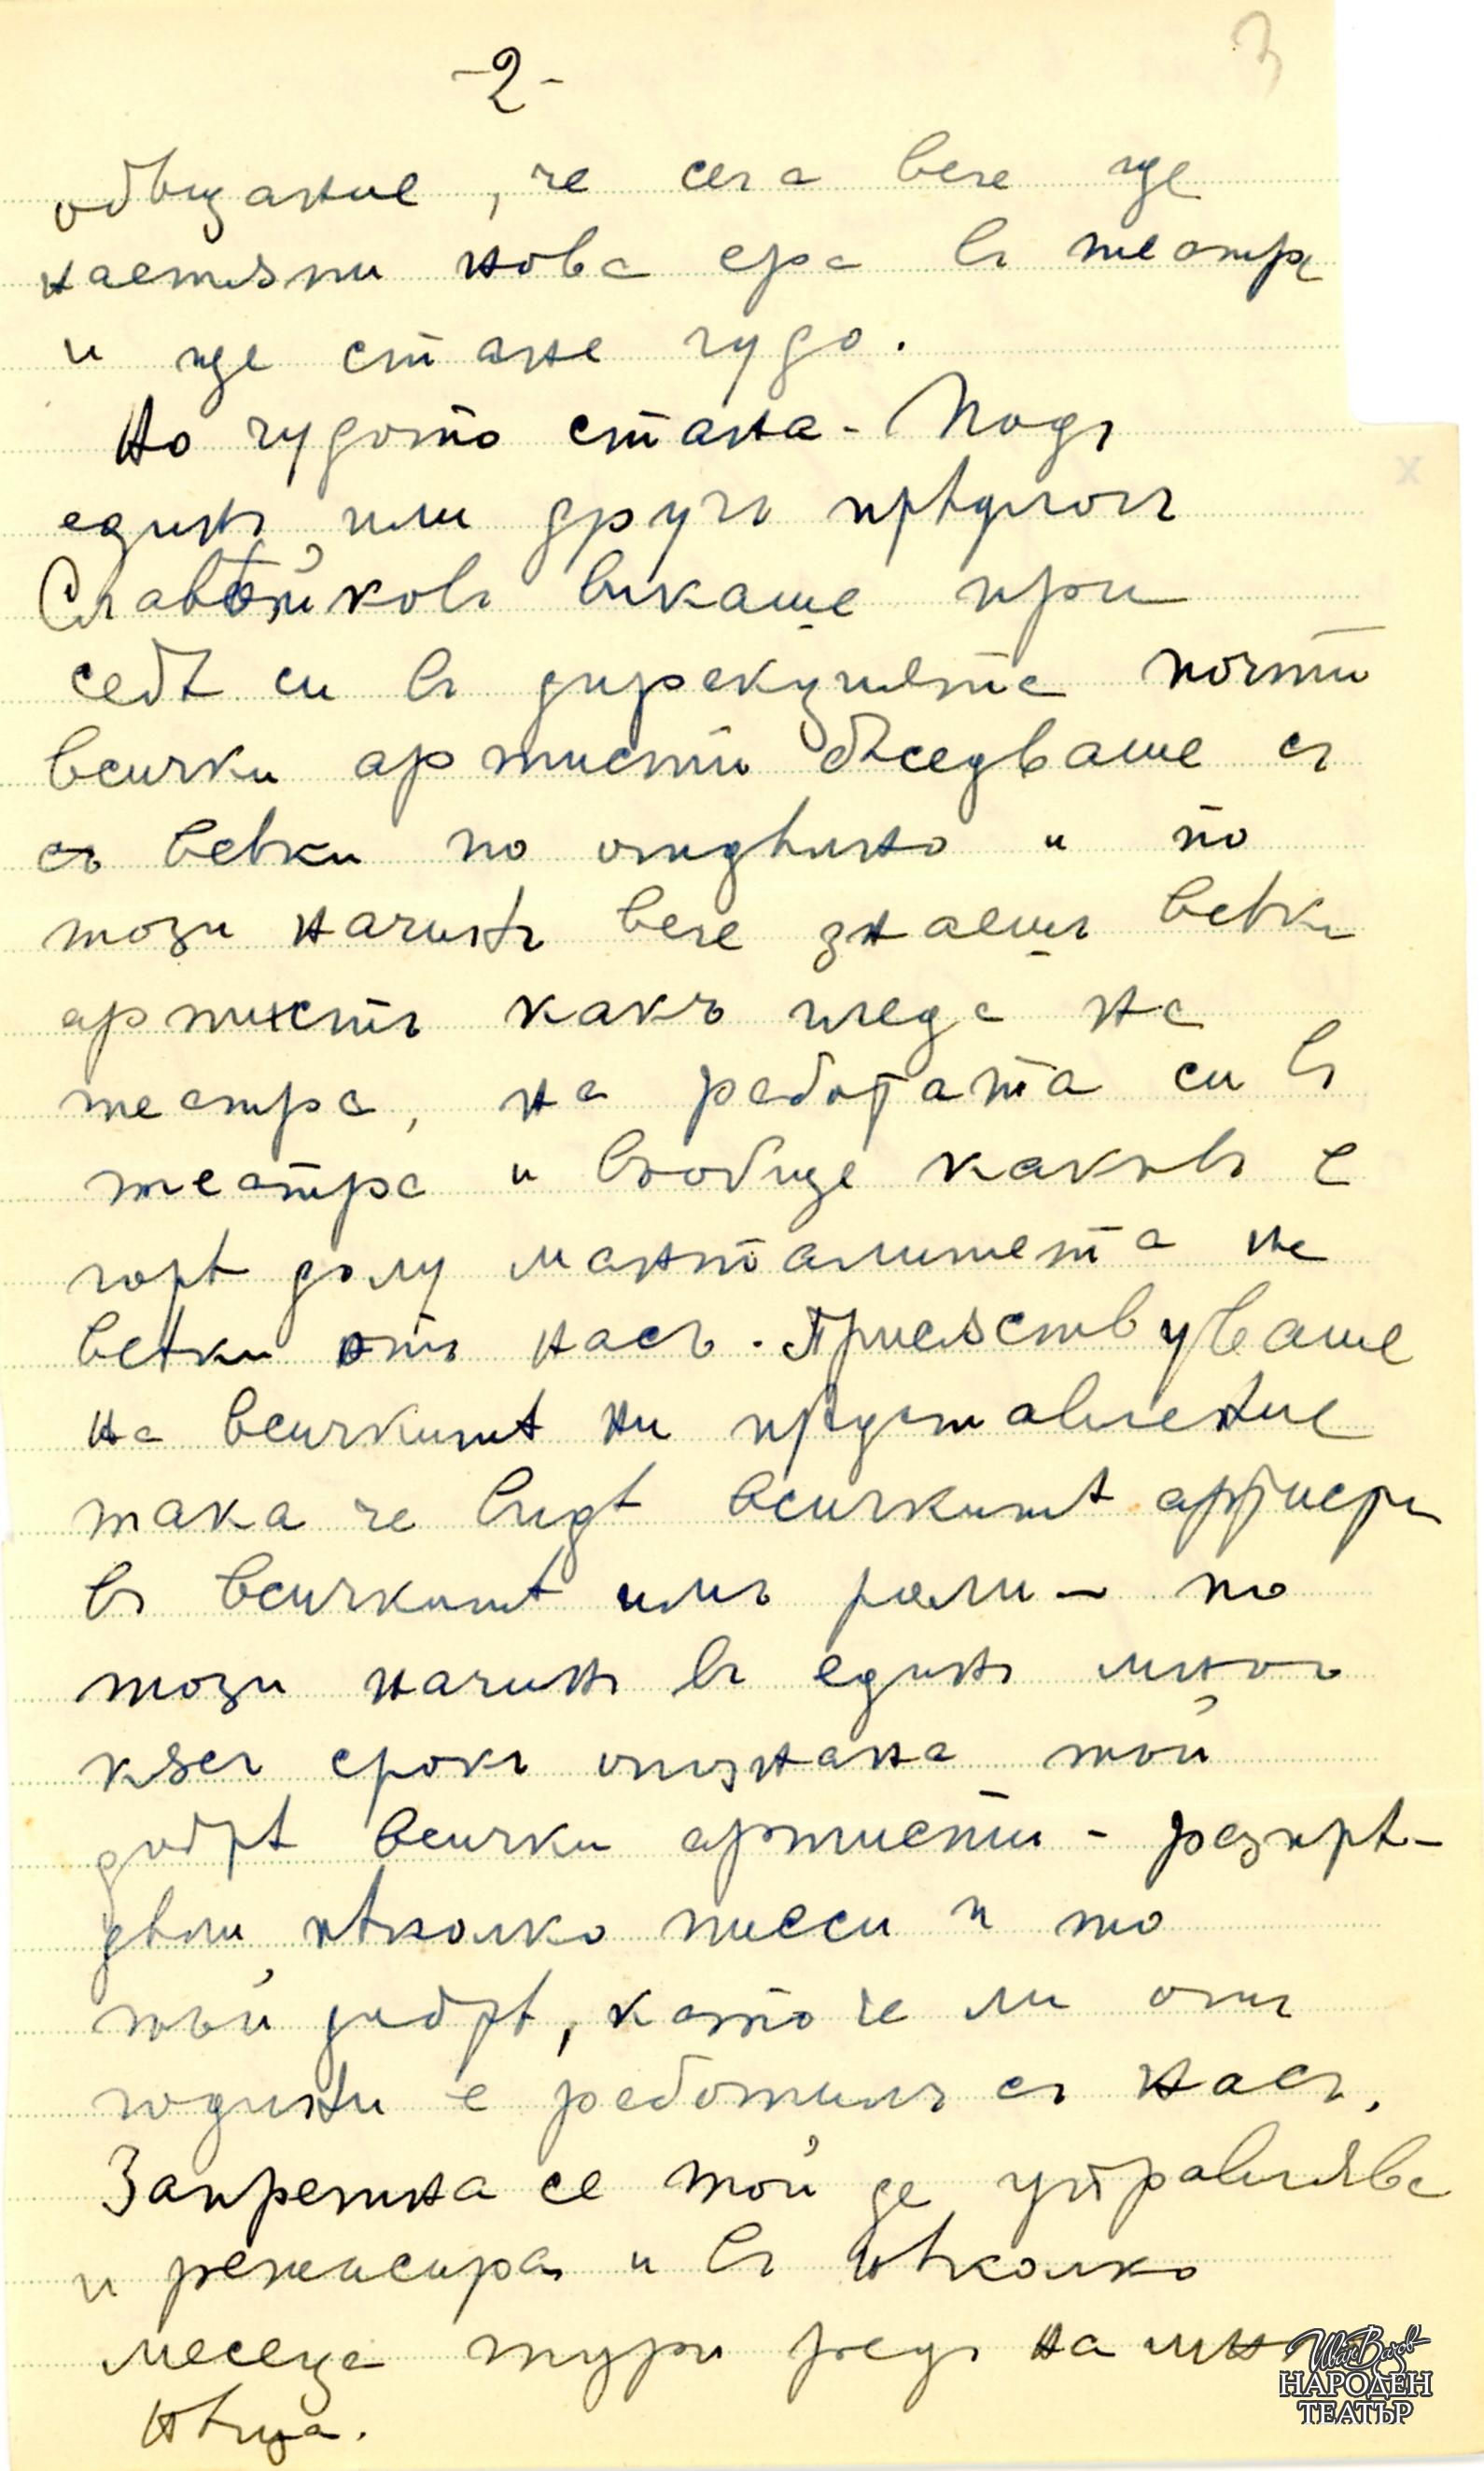 -2-
3
обѣщание, че сега вече ще
настѫпи нова ера въ театра
и ще стане чудо.
Но чудото стана - Подъ
единъ или другъ прѣдлогъ
Славѣйковъ викаше при
себѣ си въ дирекцията почти
всички артисти бѣседваше съ
съ всѣки по отдѣлно и по
този начинъ вече знаеше всѣки
артистъ какъ гледа на
театра, на работата си въ
театра и въобще какъвъ е
горѣ долу манталитета на
всѣки отъ насъ. Приемствуваше
на всичкитѣ ни прѣдставление
така че видѣ всичкитѣ артисти
въ всичкитѣ имъ роли - по
този начинъ въ единъ много
кѫсъ срокъ опознана той
добрѣ всички артисти - разпрѣ-
дѣли нѣколко пиеси и то
тъй добрѣ, като че ли отъ
години е работилъ съ насъ.
Запретна се той да управлява
и режисира и въ нѣколко
месеца тури редъ на много
нѣща.
Иван Вазов
НАРОДЕН
ТЕАТЪР